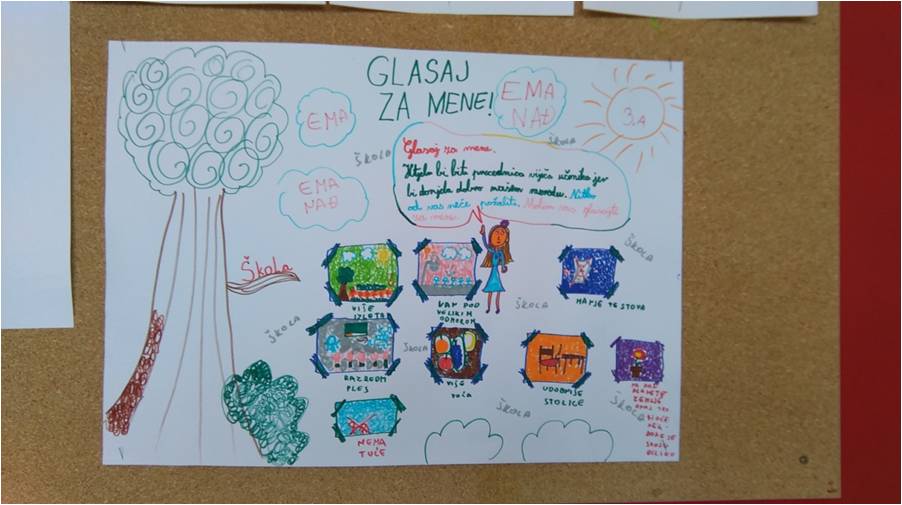 GLASAJ
ZA MENE!
EMA
EMA
NAĐ
3.A
EMA
NAĐ
ŠKOLA
ŠKOLA
Glasaj za mene.
Htjela bi bit predsednica viječa učenika jer
bi donjela dobro našem narodu. Nitko
od vas neče požaliti. Molim vas glasajte
za mene.
Škola
ŠKOLA
VIŠE
IZLETA
VAN POD
VELIKIM
ODMOROM
ŠKOLA
MANJE TESTOVA
ŠKOLA
RAZREDNI
PLES
ŠKOLA
VIŠE
VOĆA
UDOBNIJE
STOLICE
ŠKOLA
ŠKOLA
NA DAN
PLANETE
ZEMLJE
SVAKI
BILJKU
NEMA
TUČE